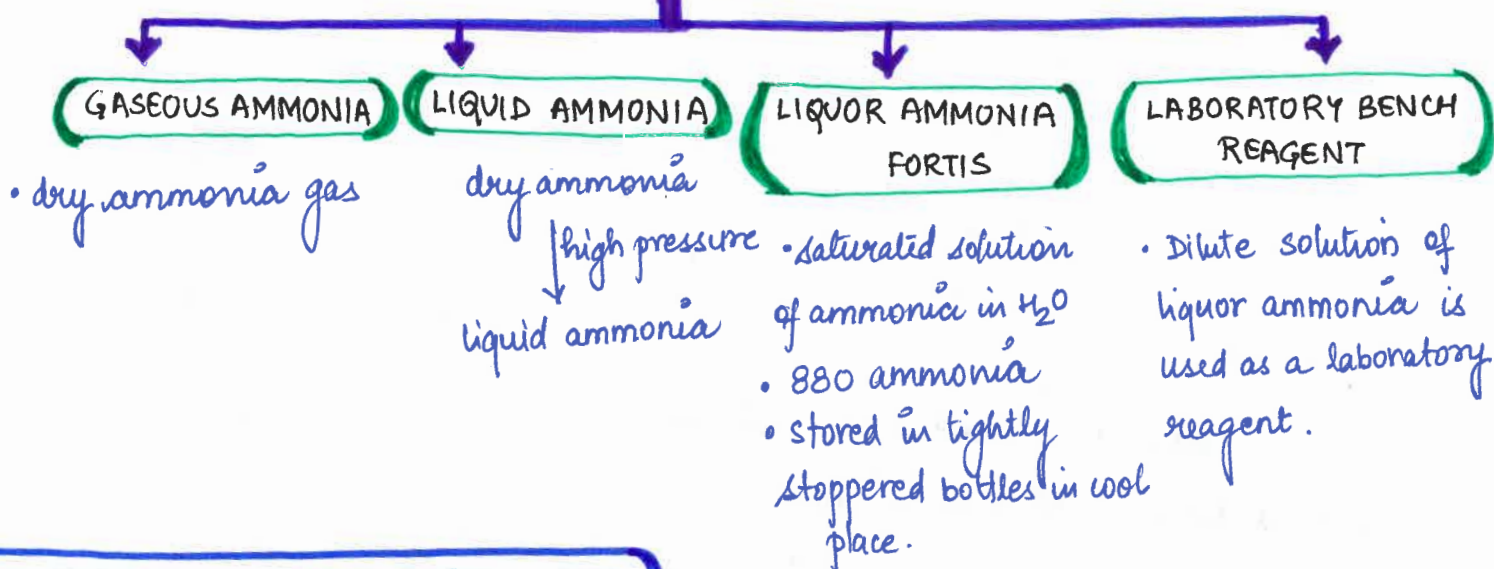 GASEOUS AMMONIA
• dry ammonia gas
LIQUID AMMONIA
dry ammonia
high pressure
liquid ammonia
LIQUOR AMMONIA
FORTIS
• saturated solution
of ammonia in H₂O
• 880 ammonia
• stored in tightly
stoppered bottles in cool
place.
LABORATORY BENCH
REAGENT
• Dilute solution of
liquor ammonia is
used as a laboratory
reagent.